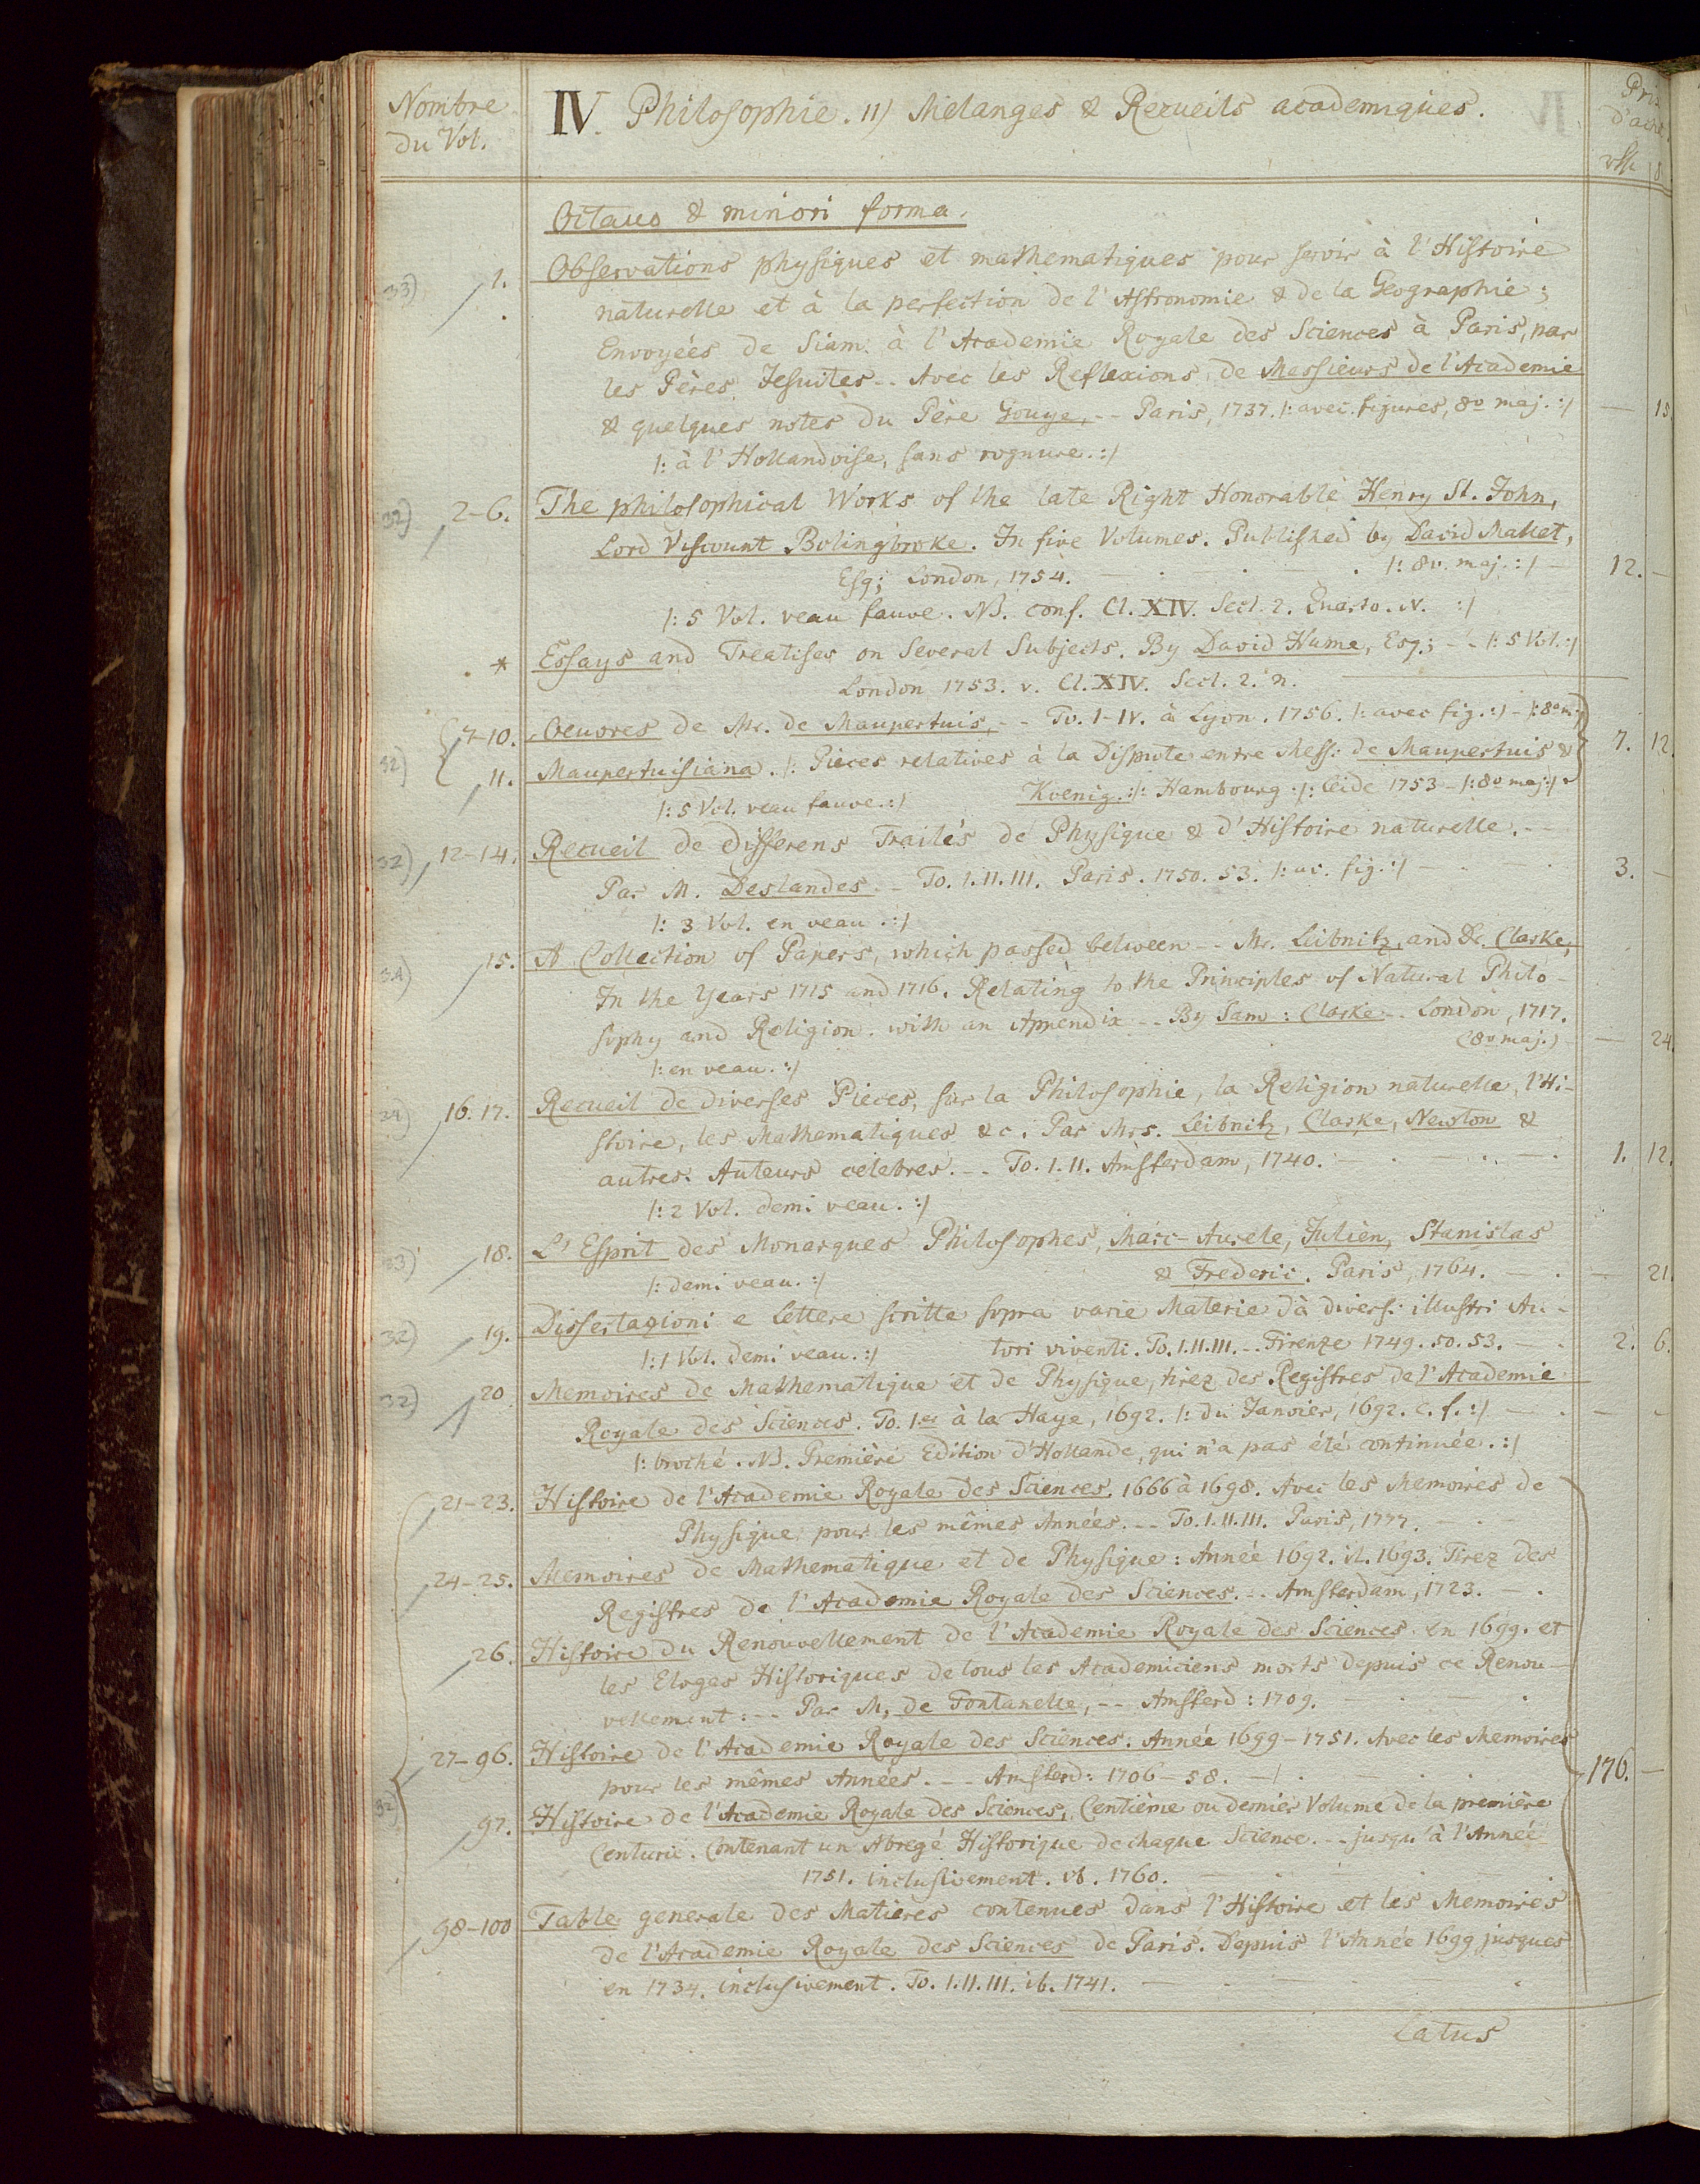 Nombre
du Vol.
IV. Philosophie. 11) Melanges & Recueils academiques.
Prix
d'achat
Octavo & minori forma.
33) 1. Observations physiques et mathematiques pour servir à l'Histoire
naturelle et à la perfection de l'Astronomie & de la Geographie;
Envoyées de Siam à l'Academie Royale des Sciences à Paris, par
les Pères Jesuites -- Avec les Reflexions de Messieurs de l'Academie
& quelques notes du Père Gouye, -- Paris, 1737. /: avec figures, 8o maj. :/ — 15.
/: à l'Hollandoise, sans rognure. :/
32) 2-6. The philosophical Works of the late Right Honorable Henry St. John,
Lord Viscount Bolingbroke. In five Volumes. Published by David Mallet,
Esq; London, 1754. — . — . /: 8v. maj. :/ — 12. —
/: 5 Vol. veau fauve. NB. conf. Cl. XIV. Sect. 2. Quarto. N. :/
* Essays and Treatises on Several Subjects. By David Hume, Esq; -- /: 5 Vol. :/
London 1753. v. Cl. XIV. Sect. 2. n. —
7-10. Oeuvres de Mr. de Maupertuis, -- To. I-IV. à Lyon. 1756. /: avec fig. :/ - /: 8o m. :/
32) 11. Maupertuisiana. /: Pieces relatives à la Dispute entre Mess: de Maupertuis & 7. 12.
/: 5 Vol. veau fauve. :/ Koenig. :/ Hambourg :/: Leide 1753 - /: 8o maj :/
32) 12-14. Recueil de differens Traités de Physique & d'Histoire naturelle. --
Par M. Deslandes. - To. I. II. III. Paris. 1750. 53. /: av. fig. :/ — 3. —
/: 3 Vol. en veau. :/
34) 15. A Collection of Papers, which passed between -- Mr. Leibnitz, and Dr. Clarke,
In the Years 1715 and 1716. Relating to the Principles of Natural Philo-
sophy and Religion. with an Appendix -- By Sam: Clarke -- London, 1717.
/: en veau. :/ (8v maj.) — 24.
34) 16. 17. Recueil de diverses Pieces, sur la Philosophie, la Religion naturelle, l'Hi-
stoire, les Mathematiques &c. Par Mrs. Leibnitz, Clarke, Newton &
autres Auteurs celebres. -- To. I. II. Amsterdam, 1740. — . — . 1. 12.
/: 2 Vol. demi veau. :/
33) 18. L'Esprit des Monarques Philosophes, Marc-Aurele, Julien, Stanislas
/: demi veau. :/ & Frederic. Paris, 1764. — . — 21.
32) 19. Dissertazioni e Lettere scritte sopra varie Materie dà divers: illustri Au-
/: 1 Vol. demi veau. :/ tori viventi. To. I. II. III. -- Firenze 1749. 50. 53. — . 2. 6.
32) 20 Memoires de Mathematique et de Physique, tirez des Registres de l'Academie
Royale des Sciences. To. 1er à la Haye, 1692. /: du Janvier, 1692. c. f. :/ — . — -
/: broché. NB. Première Edition d'Hollande, qui n'a pas été continuée. :/
21-23. Histoire de l'Academie Royale des Sciences. 1666 à 1698. Avec les Memoires de
Physique pour les mêmes Années. -- To. I. II. III. Paris, 1777. —
24-25. Memoires de Mathematique et de Physique: Année 1692. it. 1693. Tirez des
Registres de l'Academie Royale des Sciences. -- Amsterdam, 1723. — .
26. Histoire du Renouvellement de l'Academie Royale des Sciences en 1699. et
les Eloges Historiques de tous les Academiciens morts depuis ce Renou-
vellement: -- Par M. de Fontanelle, -- Amsterd: 1709. — . — .
27-96. Histoire de l'Academie Royale des Sciences. Année 1699-1751. Avec les Memoires
pour les mêmes Années. -- Amsterd: 1706-58. — . 176. —
32) 97. Histoire de l'Academie Royale des Sciences, Centième ou dernier Volume de la première
Centurie. Contenant un Abregé Historique de chaque Science. -- jusqu'à l'Année
1751. inclusivement. ib. 1760. —
98-100 Table generale des Matieres contenues dans l'Histoire et les Memoires
de l'Academie Royale des Sciences de Paris. Depuis l'Année 1699 jusques
en 1734. inclusivement. To. I. II. III. ib. 1741. — .
Latus